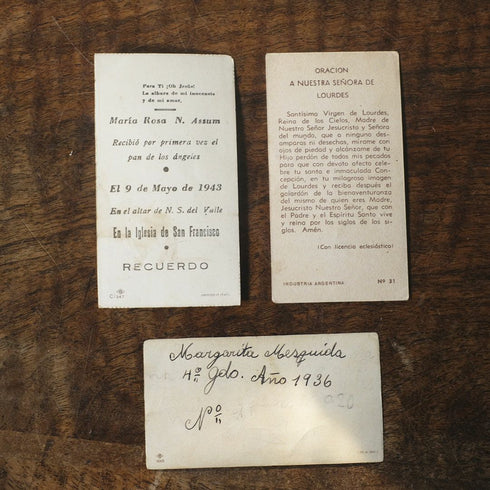 Para Ti ¡Oh Jesús!
La albura de mi inocencia
y de mi amor.
María Rosa N. Assum
Recibió por primera vez el
pan de los ángeles
El 9 de Mayo de 1943
En el altar de N. S. del Valle
En la Iglesia de San Francisco
RECUERDO
C/347
ORACION
A NUESTRA SEÑORA DE
LOURDES
Santísima Virgen de Lourdes,
Reina de los Cielos, Madre de
Nuestro Señor Jesucristo y Señora
del mundo, que a ninguno des-
amparas ni desechas, mírame con
ojos de piedad y alcánzame de tu
Hijo perdón de todos mis pecados
para que con devoto afecto cele-
bre tu santa e inmaculada Con-
cepción, en tu milagrosa imagen
de Lourdes y reciba después el
galardón de la bienaventuranza
del mismo de quien eres Madre,
Jesucristo Nuestro Señor, que con
el Padre y el Espíritu Santo vive
y reina por los siglos de los si-
glos. Amén.
(Con licencia eclesiástica)
INDUSTRIA ARGENTINA Nº 31
Margarita Mesquida
4º gdo. Año 1936
Nº